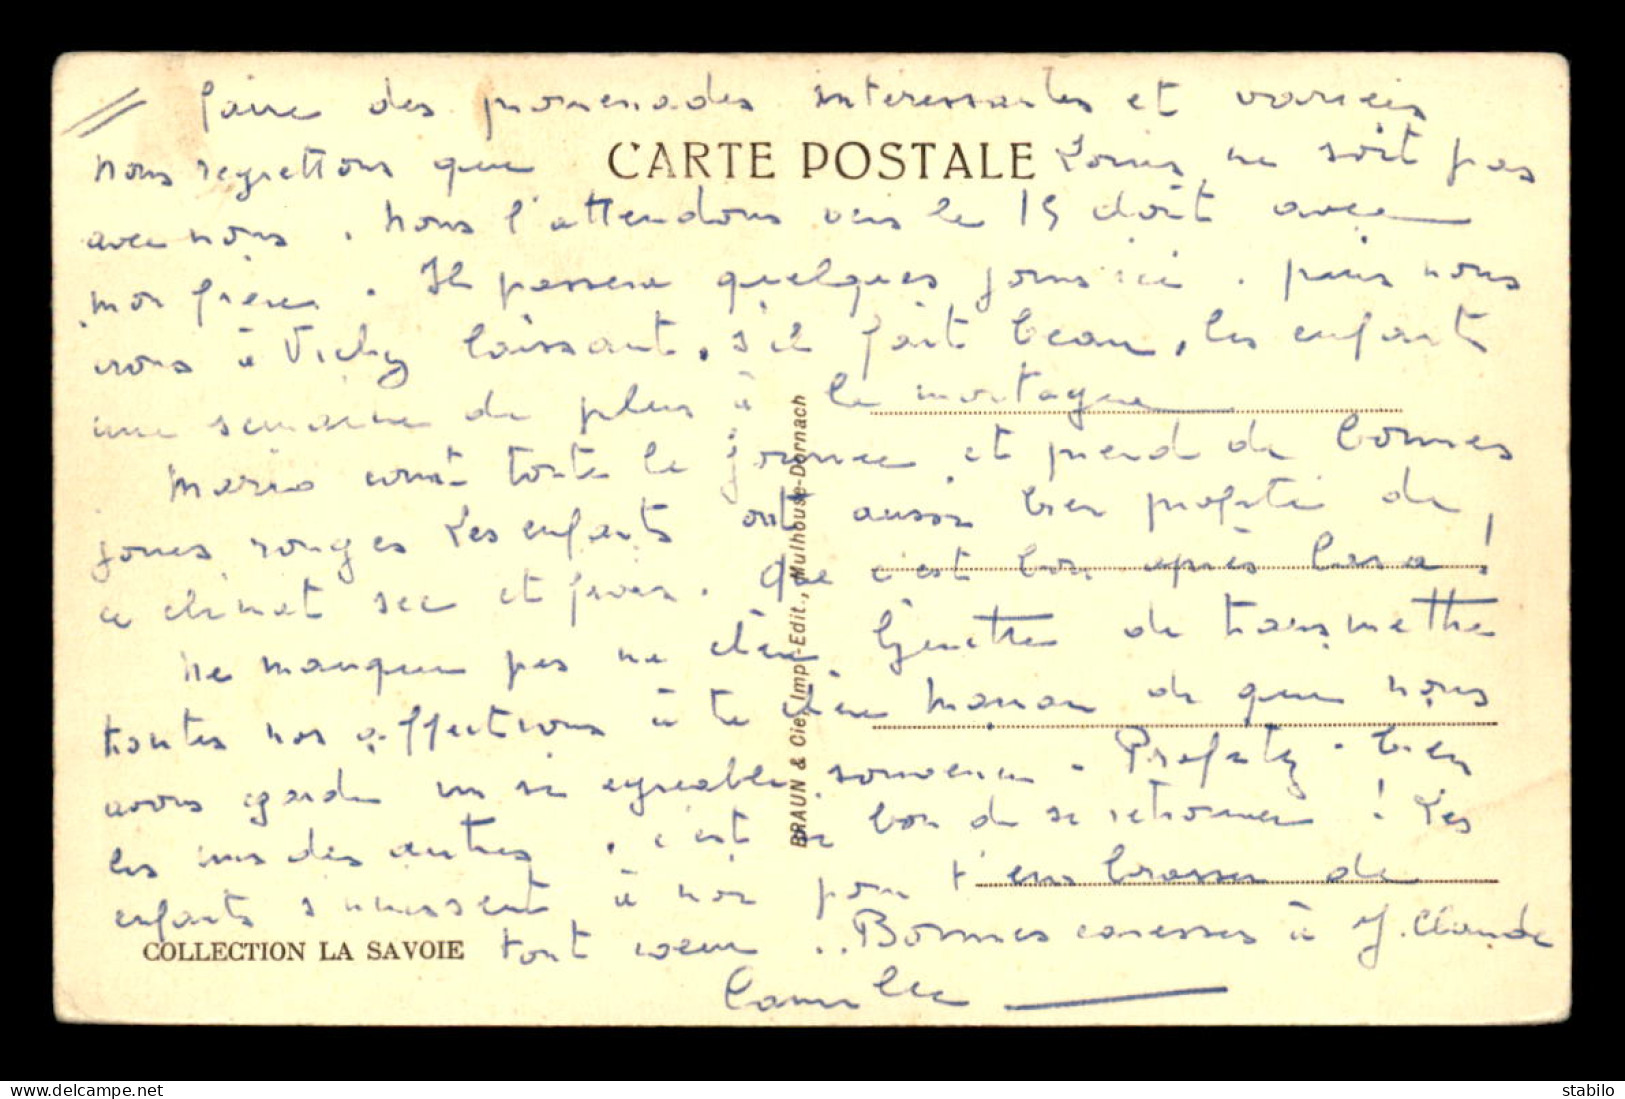 faire des promenades intéressantes et variées
CARTE POSTALE
nous regrettons que Louis ne soit pas
avec nous. Nous l'attendons vers le 15 août avec
mon frère. Il passera quelques jours ici. puis nous
irons à Vichy laissant, s'il fait beau, les enfants
une semaine de plus à la montagne
Mario court toute la journée et prend de bonnes
joues rouges Les enfants ont aussi bien profité de
ce climat sec et frais. Que c'est bon après !
Ne manque pas ma chère Ginette de transmettre
toutes nos affections à ta chère Maman de que nous
avons gardé un si agréable souvenir. Profitez-bien
les uns des autres, c'est si bon de se retrouver ! Les
enfants s'unissent à moi pour t'embrasser de
tout coeur.. Bonnes caresses à J. Claude
Camille
COLLECTION LA SAVOIE
BRAUN & Cie, Imp.-Edit., Mulhouse-Dornach
stabilo
© www.delcampe.net